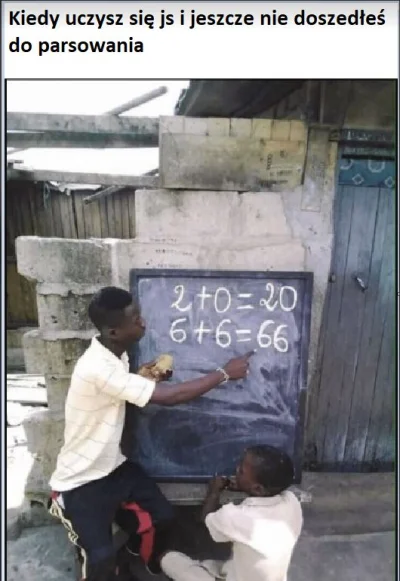 Kiedy uczysz się js i jeszcze nie doszedłeś
do parsowania
2+0=20
6+6=66